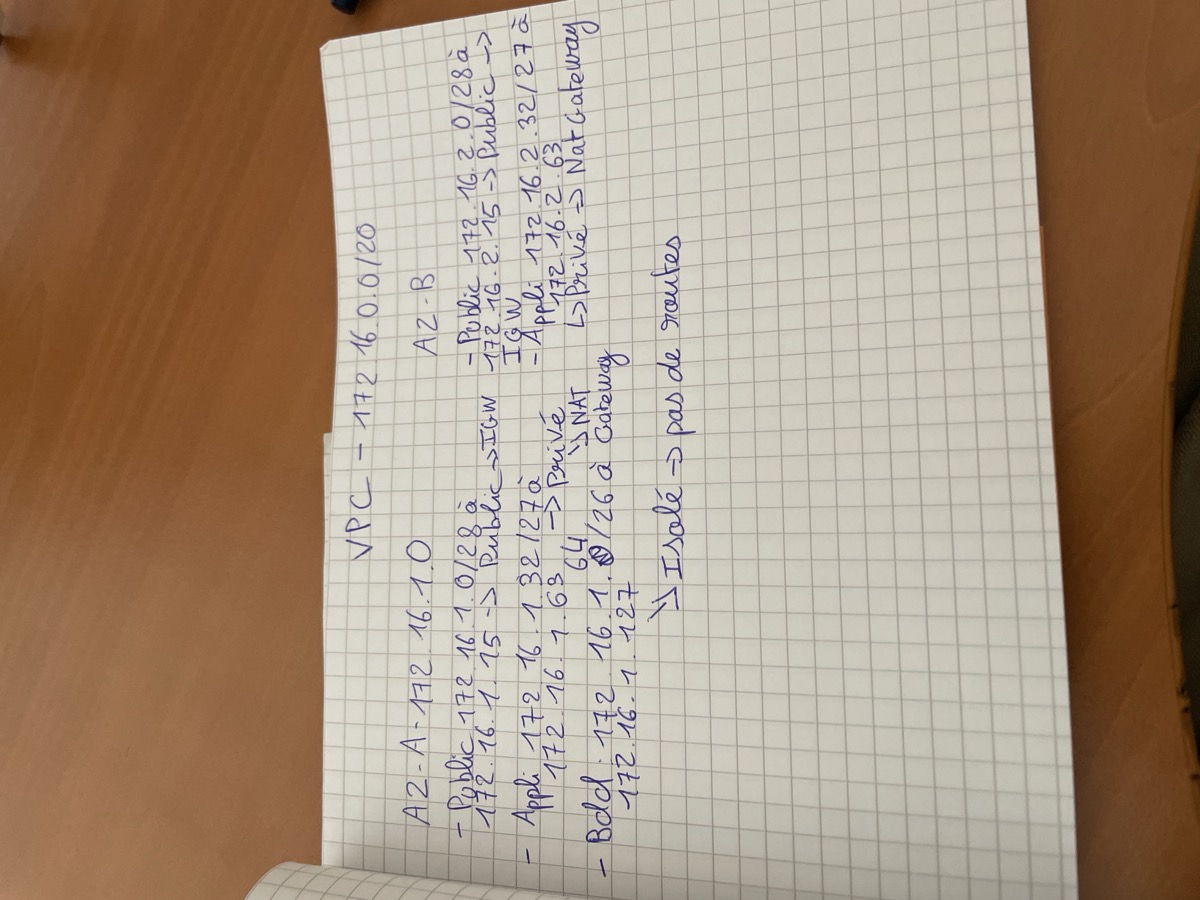 VPC - 172.16.0.0/20
AZ-A-172.16.1.0
- Public 172.16.1.0/28 à
172.16.1.15 -> Public -> IGW
- Appli 172.16.1.32/27 à
172.16.1.63 -> Privé
-> NAT
Gateway
- Bdd. 172.16.1.64/26 à
172.16.1.127
-> Isolé -> pas de routes
AZ-B
- Public 172.16.2.0/28 à
172.16.2.15 -> Public ->
IGW
- Appli 172.16.2.32/27 à
172.16.2.63
-> Privé -> Nat Gateway